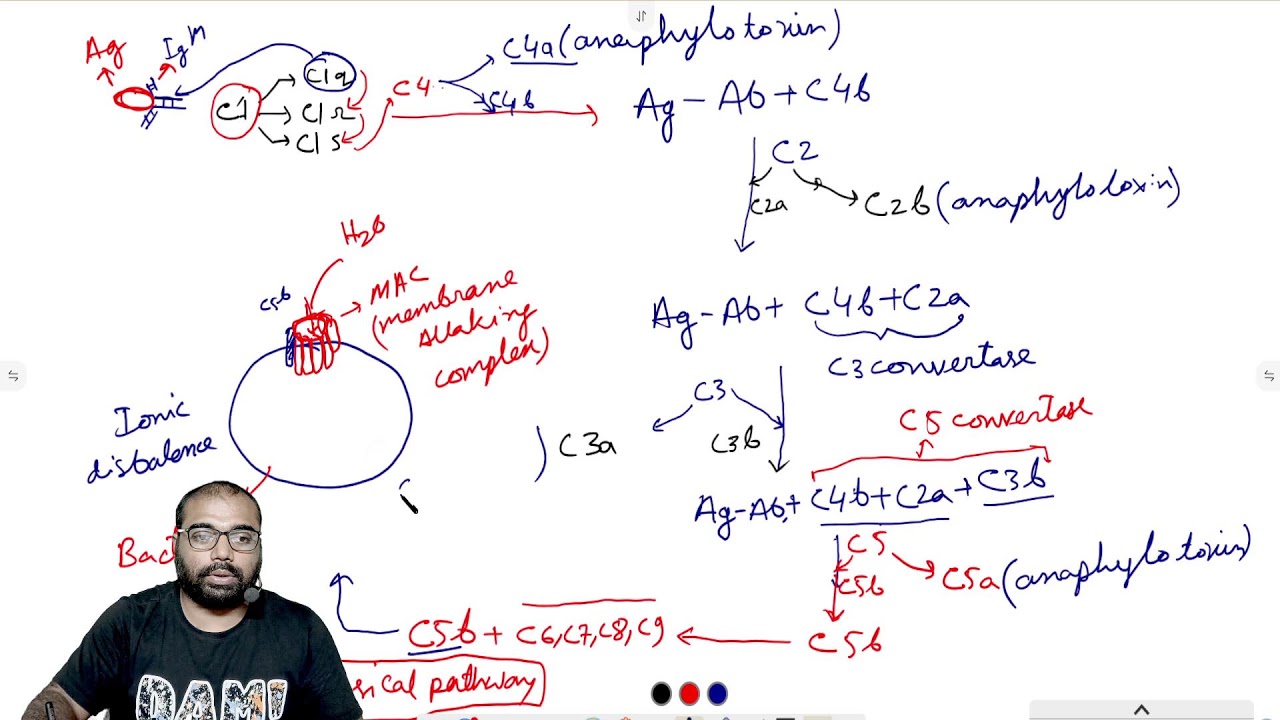 Ag
IgM
C1
C1q
C1r
C1s
C4
C4a (anaphylotoxin)
C4b
Ag-Ab+C4b
C2
C2a
C2b (anaphylotoxin)
Ag-Ab+ C4b+C2a
C3 convertase
C3
C3b
C3a
C5 convertase
Ag-Ab+ C4b+C2a+C3b
C5
C5b
C5a (anaphylotoxin)
C5b
C5b + C6,C7,C8,C9
H2O
C5b
MAC
(membrane
attaking
complex)
Ionic
disbalence
Bac
sical pathway
DAMN